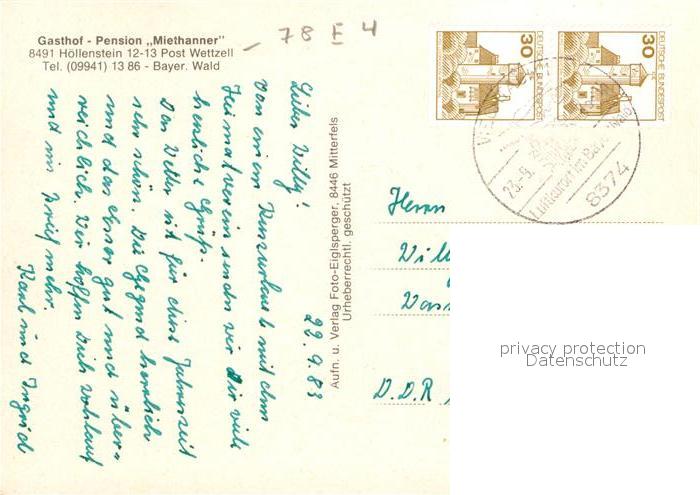 Gasthof - Pension „Miethanner"
8491 Höllenstein 12-13 Post Wettzell
Tel. (09941) 13 86 - Bayer. Wald
78 E 4
22.9.83
Lieber Willy!
Von einem Kurzurlaub mit dem
Heimatverein senden wir Dir viele
herzliche Grüße.
Das Wetter ist für diese Jahreszeit
sehr schön. Die Gegend herrlich
und das Essen gut und über=
reichlich. Wir hoffen Dich wohlauf
und im Brief mehr.
Karl und Ingrid
Aufn. u. Verlag Foto-Eiglsperger, 8446 Mitterfels
Urheberrechtl. geschützt
30
DEUTSCHE BUNDESPOST
30
DEUTSCHE BUNDESPOST
23.-9.
Luftkurort im Bayer. Wald
8374
Herrn
D.D.R
privacy protection
Datenschutz